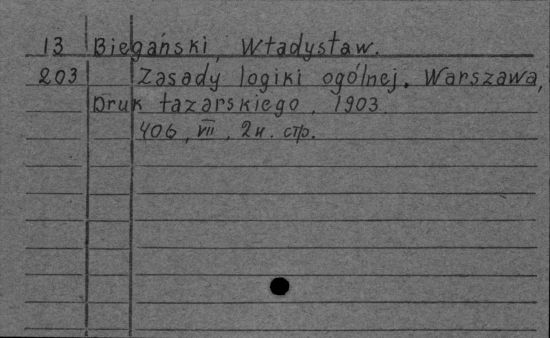 13 Biegański, Władysław.
203 Zasady logiki ogólnej. Warszawa,
Druk Łazarskiego, 1903.
406, VII, 2н. стр.